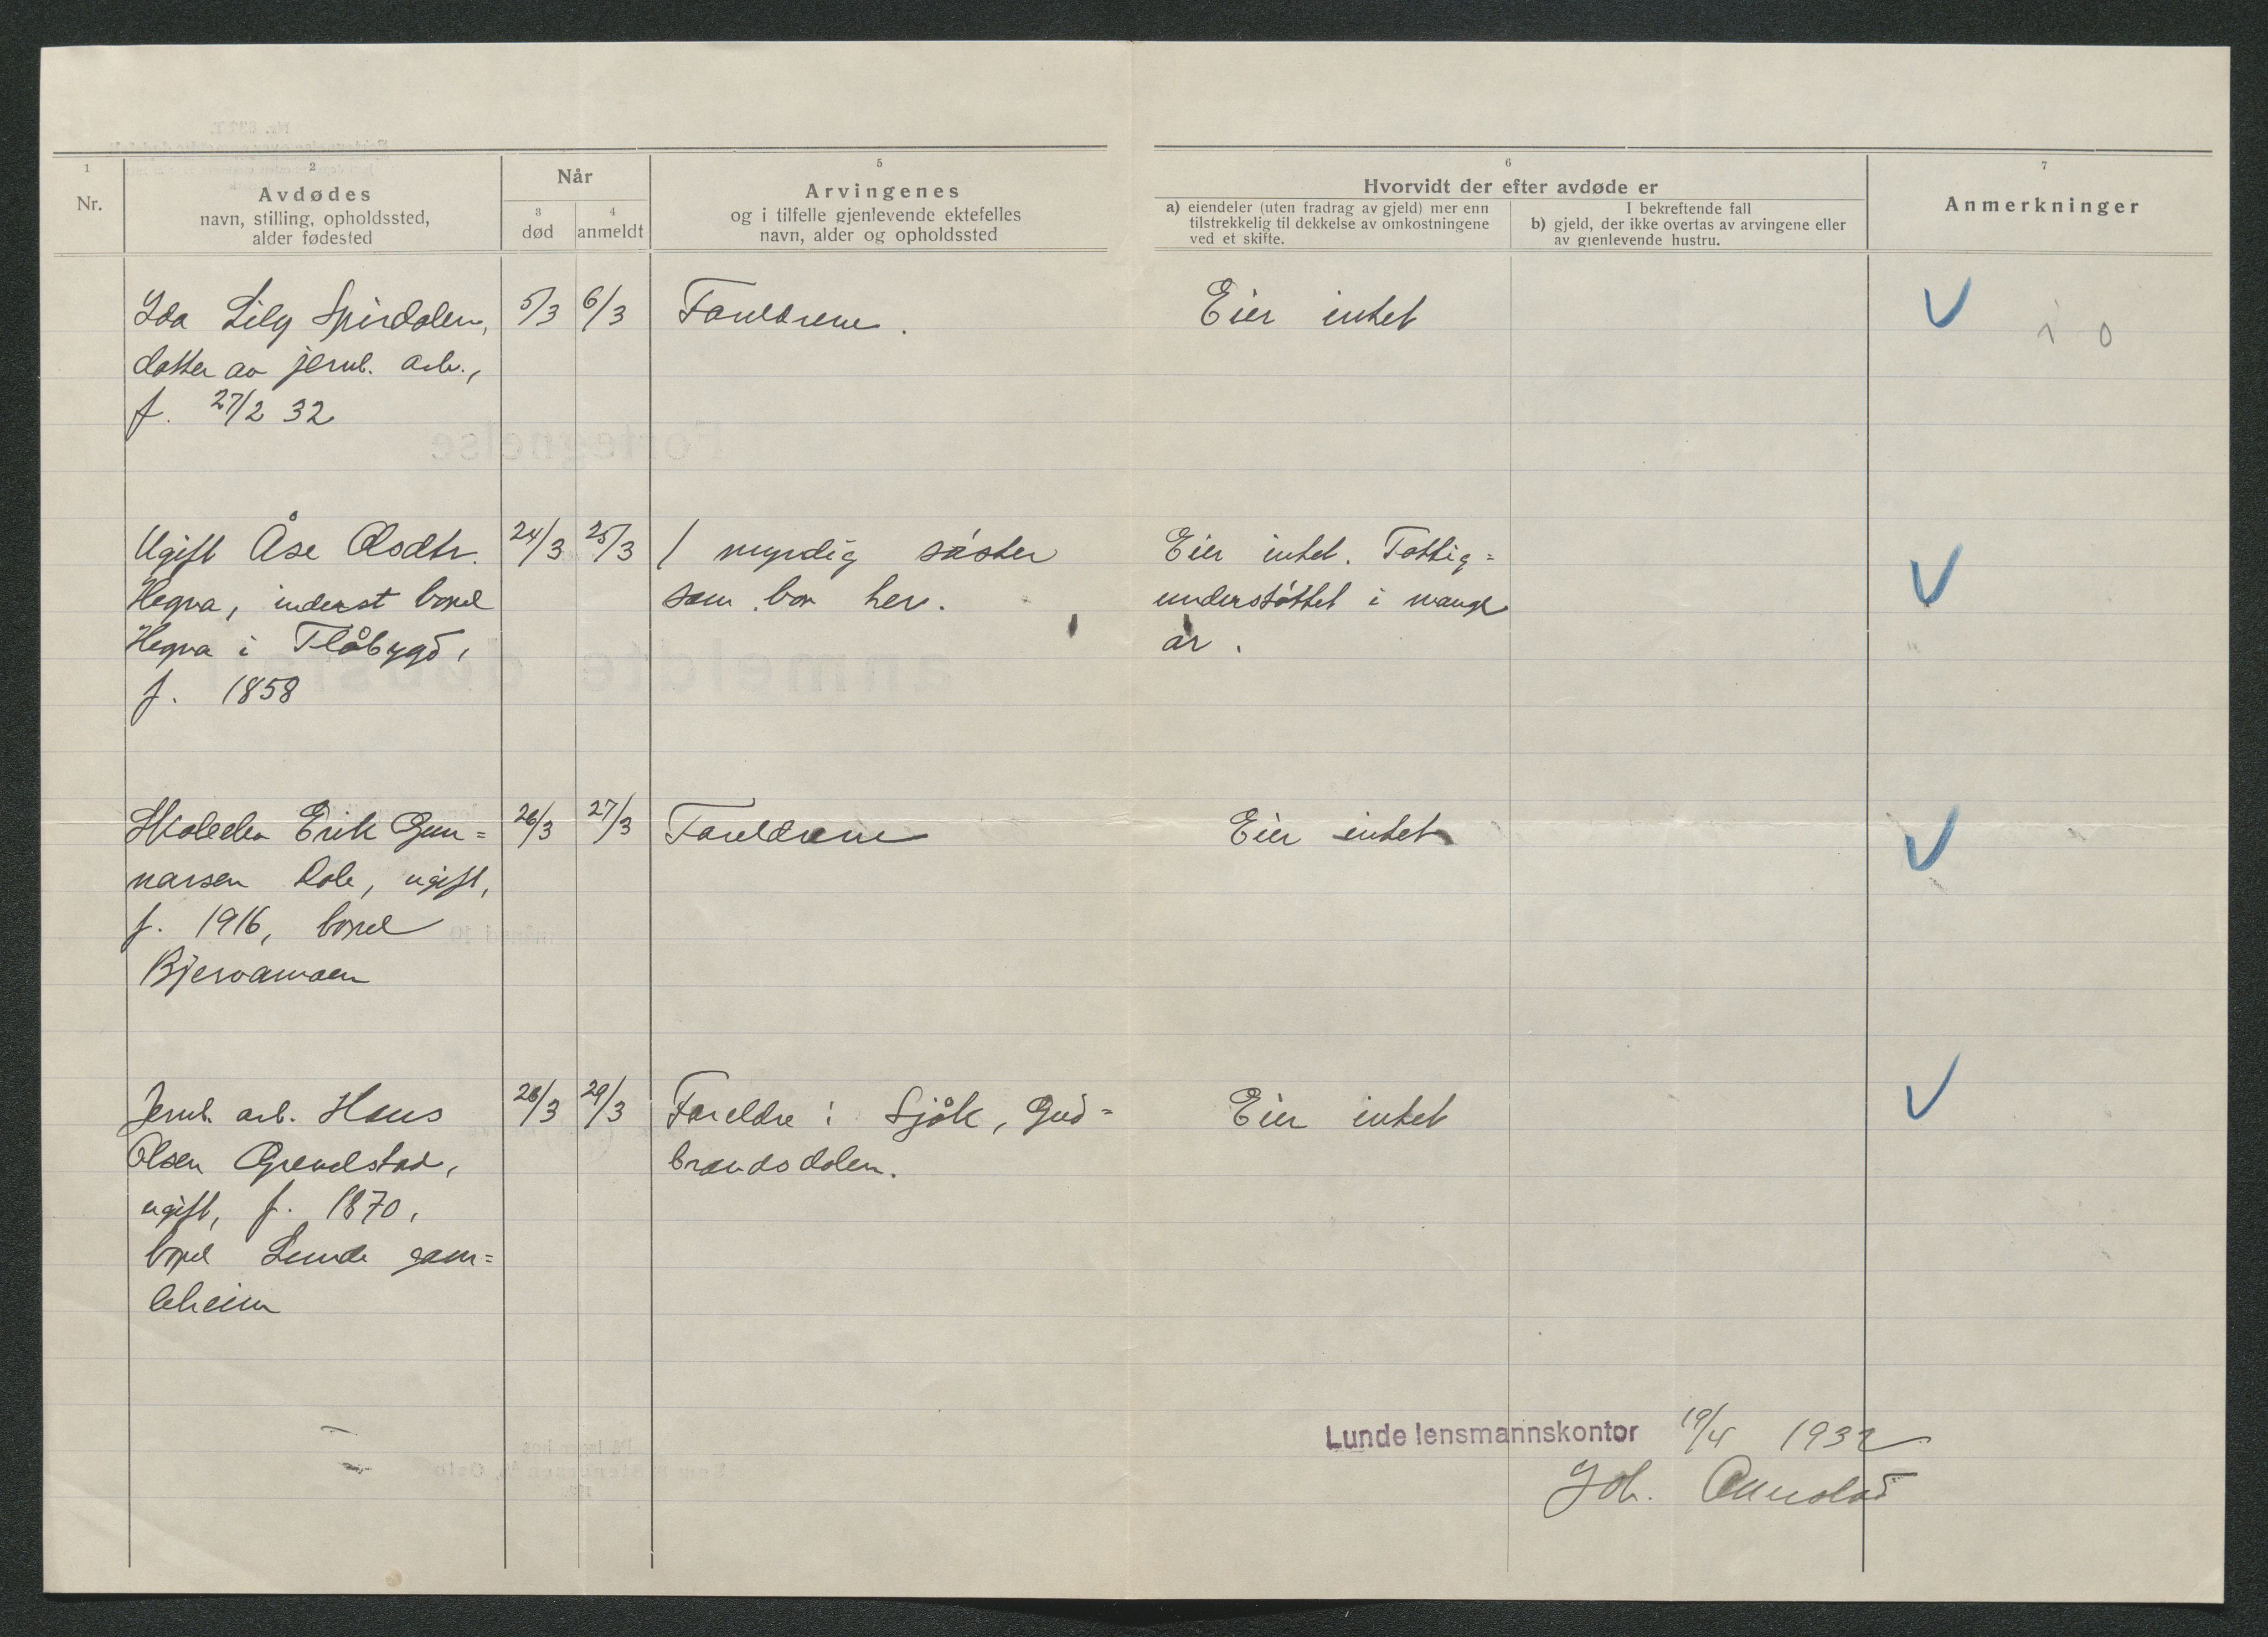 1
Nr.
2
Avdødes
navn, stilling, opholdssted,
alder fødested
Når
3
død
4
anmeldt
5
Arvingenes
og i tilfelle gjenlevende ektefelles
navn, alder og opholdssted
6
Hvorvidt der efter avdøde er
a) eiendeler (uten fradrag av gjeld) mer enn
tilstrekkelig til dekkelse av omkostningene
ved et skifte.
I bekreftende fall
b) gjeld, der ikke overtas av arvingene eller
av gjenlevende hustru.
7
Anmerkninger
Ida Lily Spirdalen,
datter av jernb. arb.,
f. 27/2 32
5/3
6/3
Foreldrene.
Eier intet
Ugift Åse Olsdtr.
Hegna, inderst bopel
Hegna i Flåbygd,
f. 1858
24/3
25/3
1 myndig søster
som bor her.
Eier intet. Fattig=
understøttet i mange
år.
Skoleelev Erik Gun=
narsen Dole, ugift,
f. 1916, bopel
Bjervamoen
26/3
27/3
Foreldrene
Eier intet
Jernb. arb. Hans
Olsen Grendstad,
ugift, f. 1870,
bopel Lunde gam=
leheim
28/3
29/3
Foreldre i Sjåk, Gud=
brandsdalen.
Eier intet
Lunde lensmannskontor 19/4 1932
Joh.